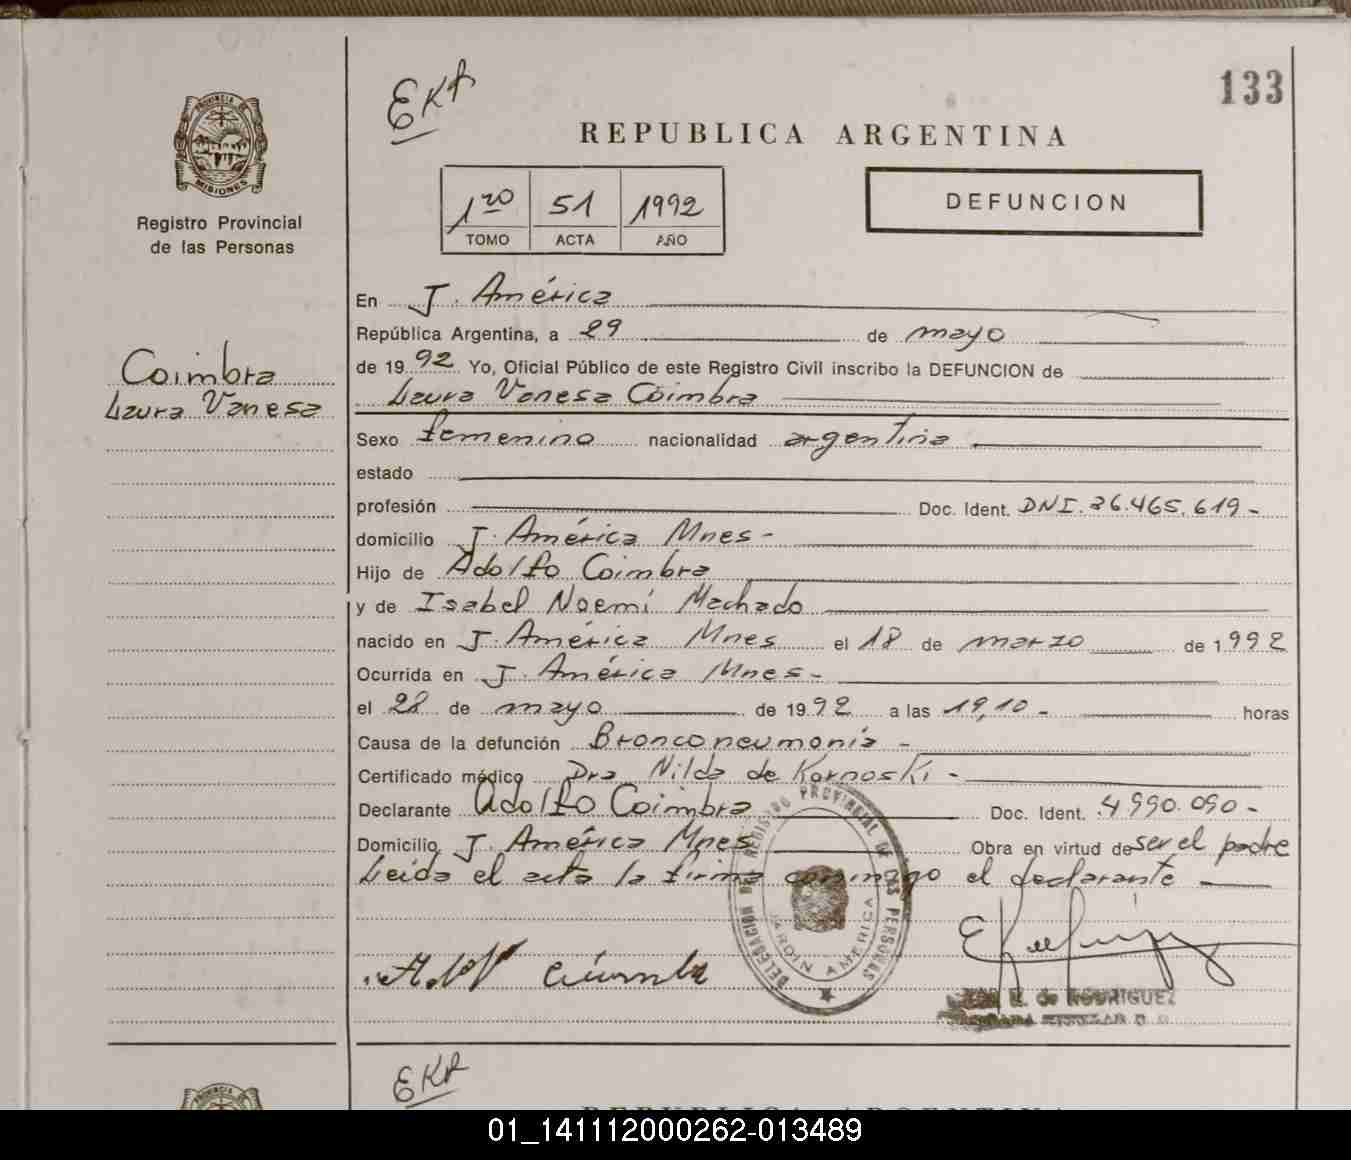 EKR
133
REPUBLICA ARGENTINA
PROVINCIA DE
MISIONES
Registro Provincial
de las Personas
1ro 51 1992
TOMO ACTA AÑO
DEFUNCION
Coimbra
Laura Vanesa
En J. América
República Argentina, a 29 de mayo
de 1992 Yo, Oficial Público de este Registro Civil inscribo la DEFUNCION de
Laura Vanesa Coimbra
Sexo femenino nacionalidad argentina
estado
profesión Doc. Ident. DNI. 36.465.619-
domicilio J. América Mnes-
Hijo de Adolfo Coimbra
y de Isabel Noemí Machado
nacido en J. América Mnes el 18 de marzo de 1992
Ocurrida en J. América Mnes-
el 28 de mayo de 1992 a las 19,10- horas
Causa de la defunción Bronconeumonía -
Certificado médico Dra Nilda de Kornoski-
Declarante Adolfo Coimbra Doc. Ident. 4990.090-
Domicilio J. América Mnes Obra en virtud de ser el padre
Leida el acta la firma conmigo el declarante
DELEGACION DEL REGISTRO PROVINCIAL DE LAS PERSONAS
JARDIN AMERICA
de RODRIGUEZ
EKR
REPUBLICA ARGENTINA
01_141112000262-013489